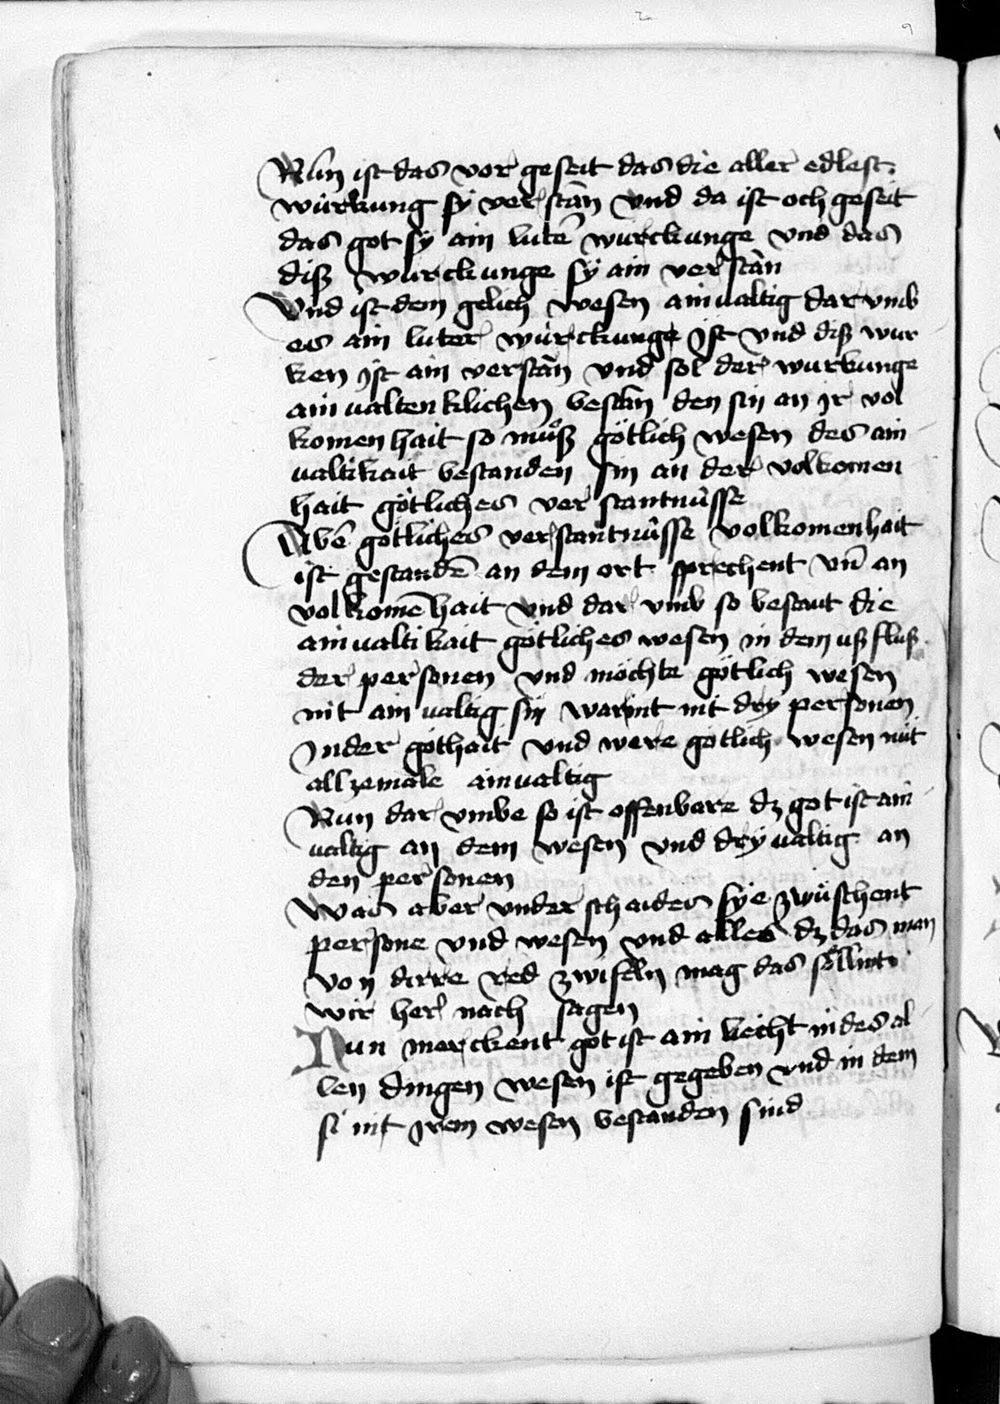 Nun ist das vor geseit das die aller edlest
würkung sy ver stān und da ist och geseit
das got sy ain luter̄ würckunge und das
diß würckunge sÿ ain ver stān
Vnd ist dem gelich wesen ainualtig dar vmb
es ain luter würckunge ist und diß wur
ken ist ain verstān und sol der wurkunge
ain ualtenklichen bestān den sin an ir vol
komen hait so můß götlich wesen des ain
ualtikait bestanden sin an der volkomen
hait götliches ver stantnüsse
Abē götliches verstantnüsse volkomenhait
ist gestandē an dem ort sprechent vn̄ an
volkomē hait und dar vmb so bestaut die
ainualtikait götliches wesen in dem uß fluß
der personen und möchte götlich wesen
nit ain ualtig sin warint nit dry personen
in der gothait und were götlich wesen nüt
allzemale ainualtig
Nun dar vmbe so ist offenbare dz got ist ain
ualtig an dem wesen und drÿ ualtig an
den personen
Was aber vnder schaides sye zwüschent
persone und wesen und alles dz das man
von dirre red zwifeln mag das söllint
wir her nach sagen
Nun merckent got ist ain liecht in des al
len dingen wesen ist gegeben und in dem
si nit irem wesen bestanden sind